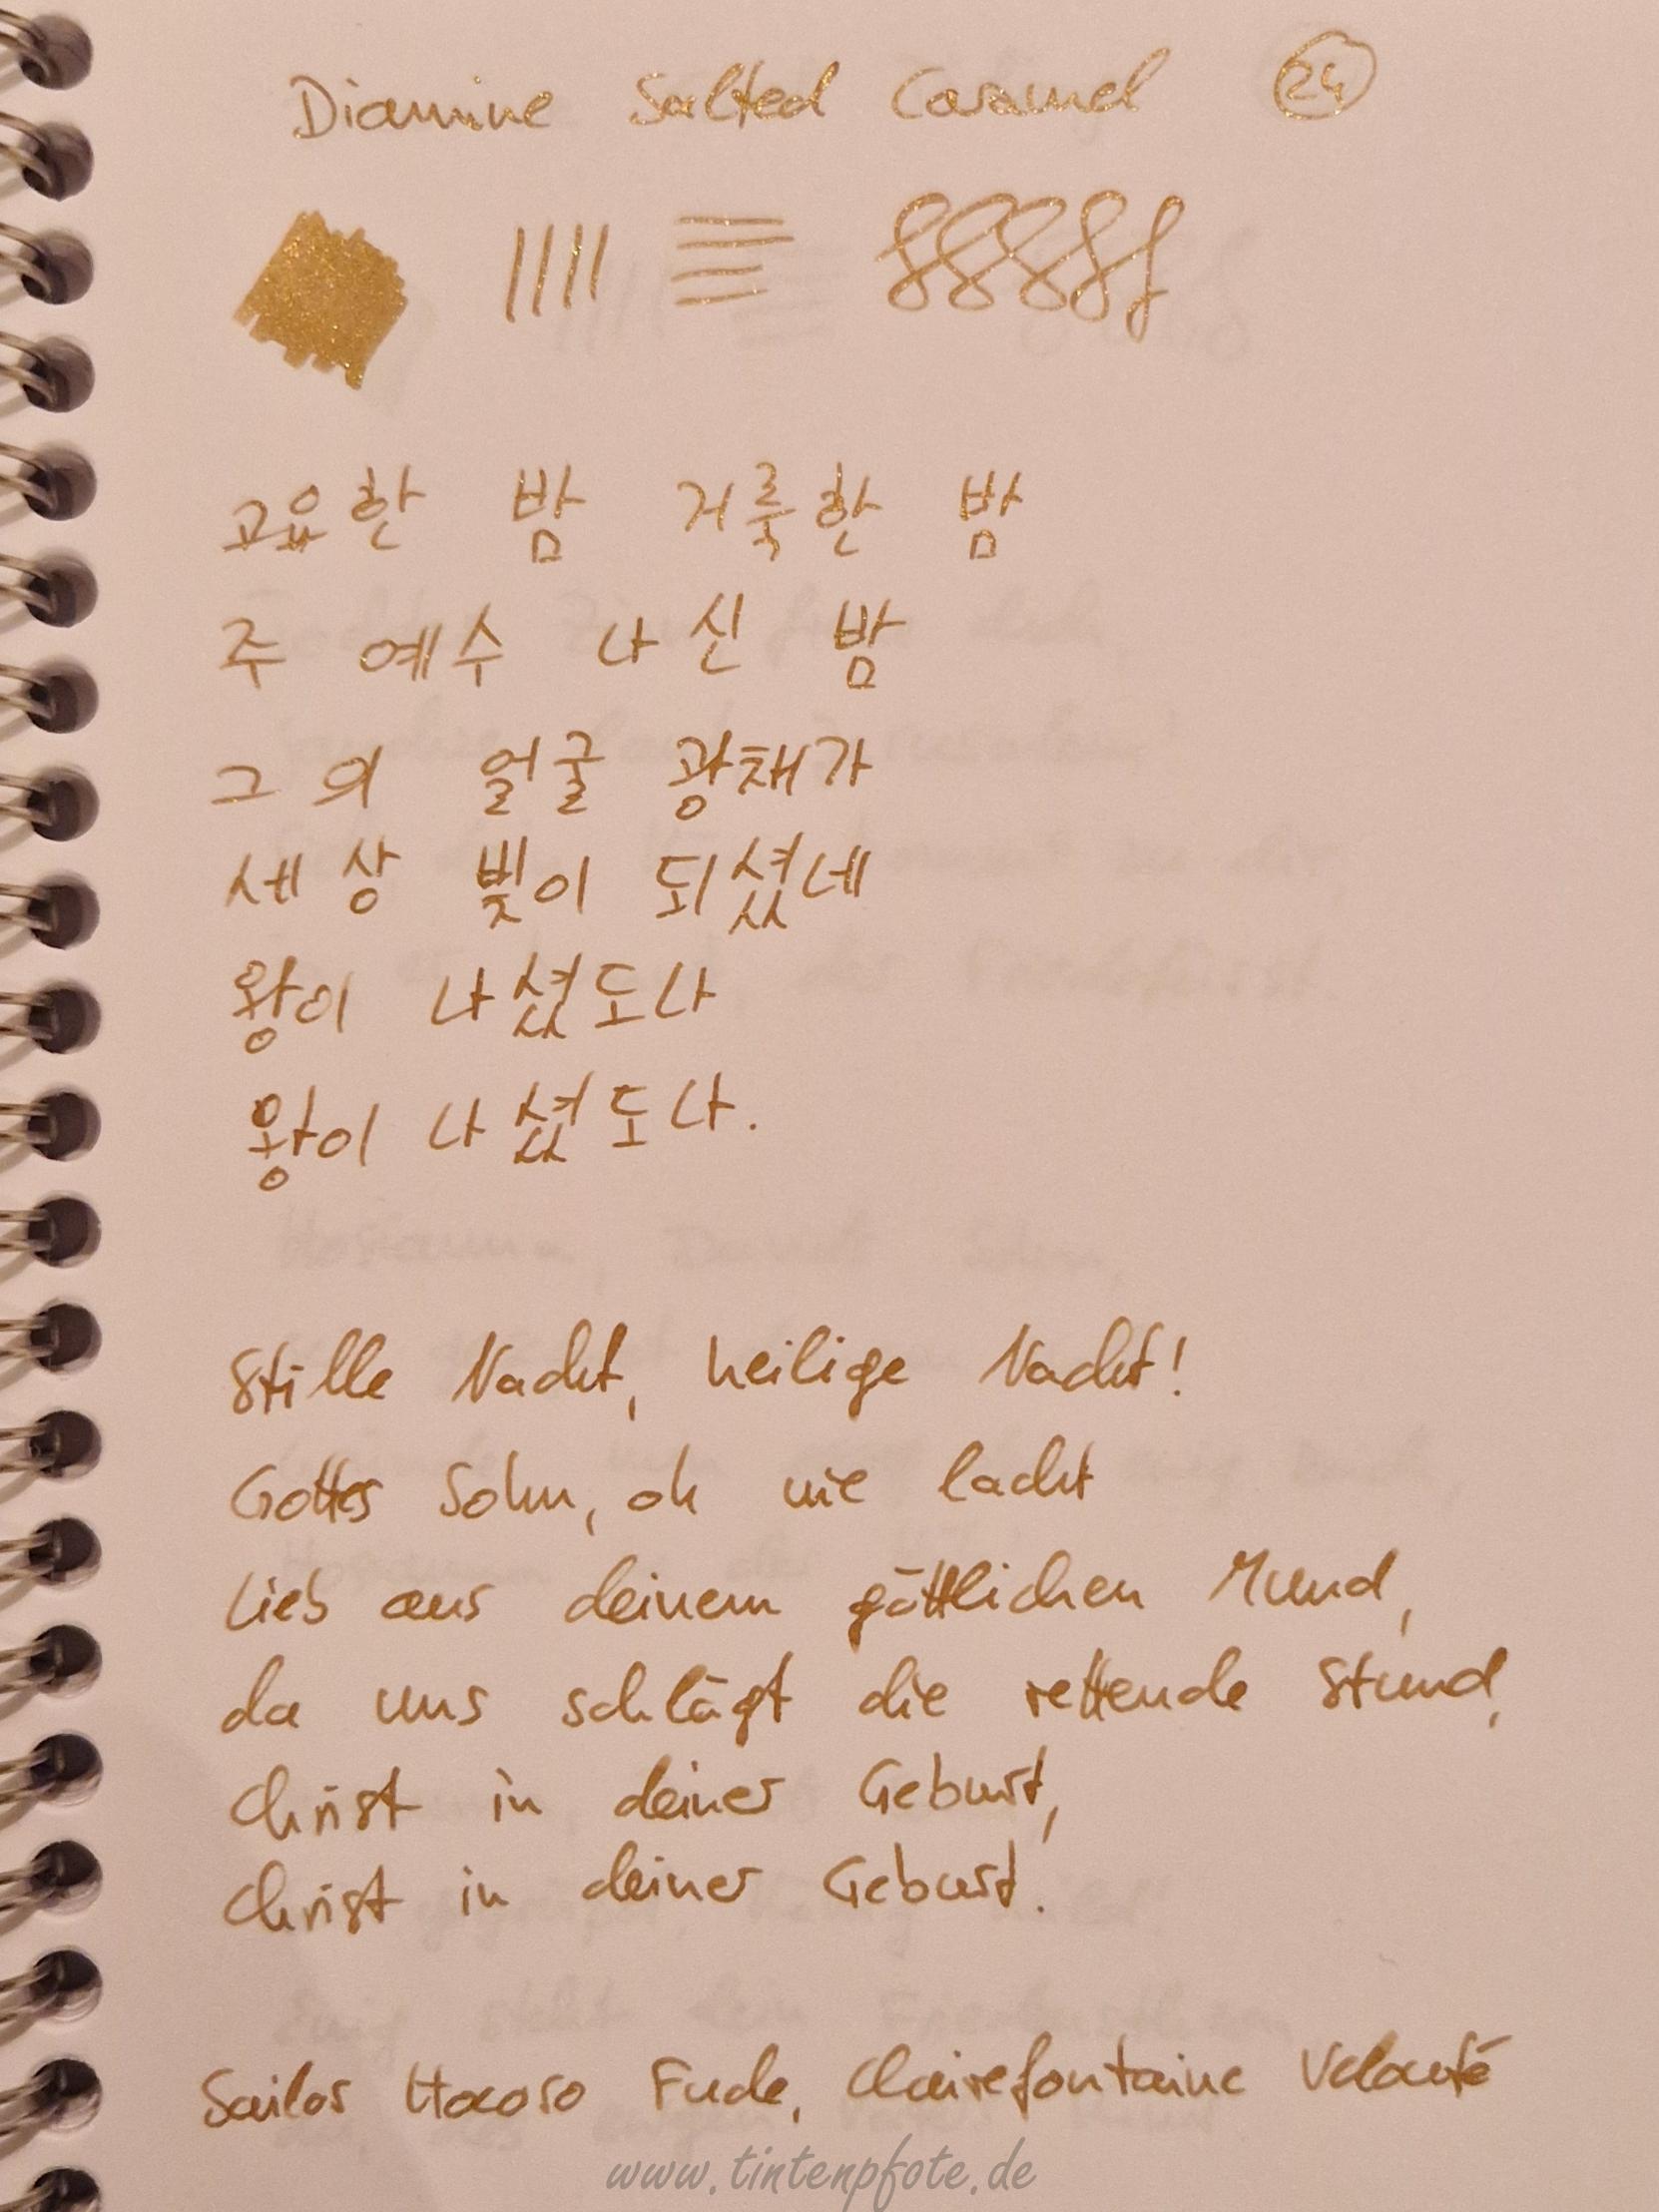 Diamine Salted Caramel 24
고요한 밤 거룩한 밤
주 예수 나신 밤
그의 얼굴 광채가
세상 빛이 되셨네
왕이 나셨도다
왕이 나셨도다.
Stille Nacht, heilige Nacht!
Gottes Sohn, oh wie lacht
Lieb aus deinem göttlichen Mund,
da uns schlägt die rettende Stund,
Christ in deiner Geburt,
Christ in deiner Geburt.
Sailor Hocoro Fude, Clairefontaine Velouté
www.tintenpfote.de